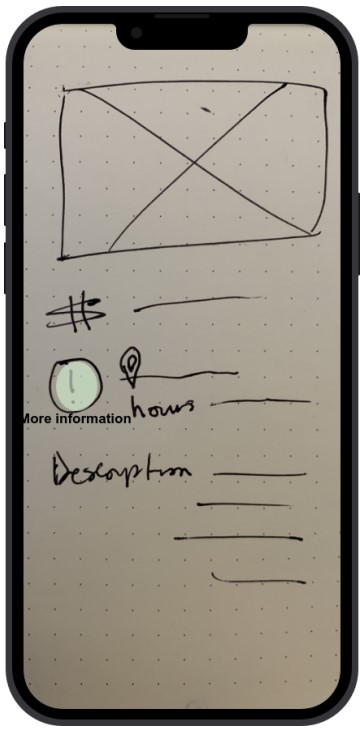 $
!
More information
hours
Description